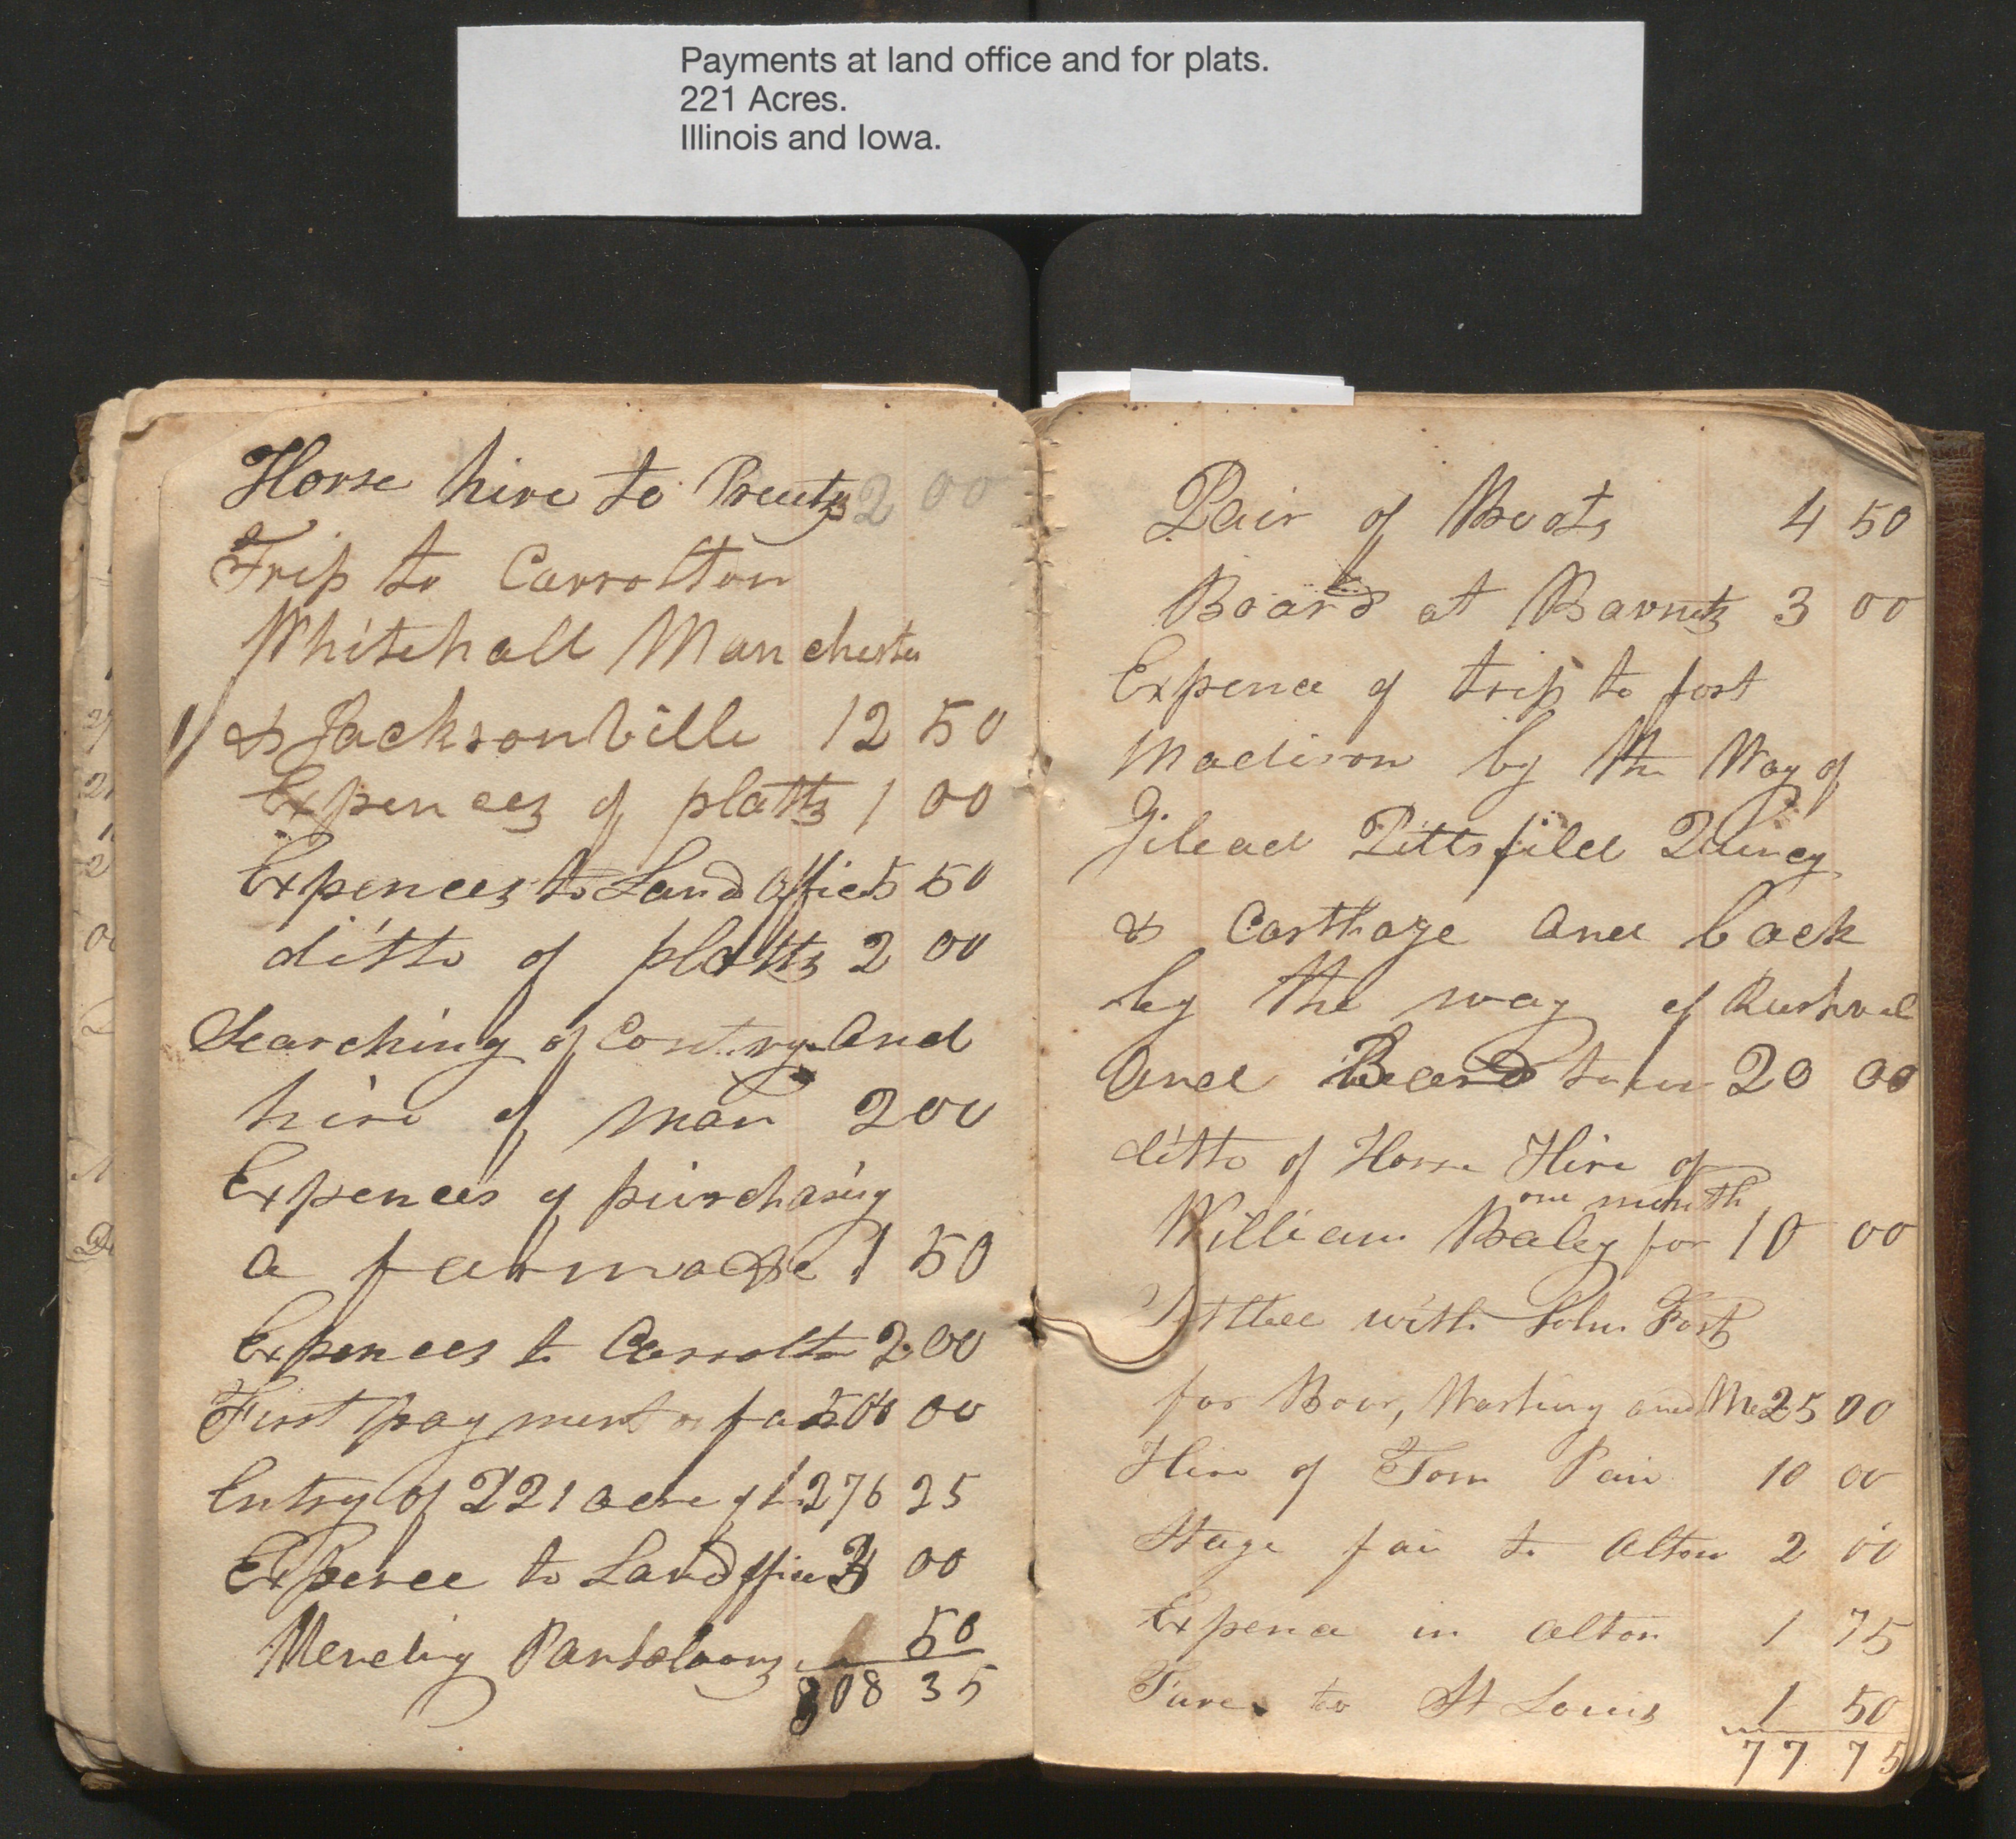 Payments at land office and for plats.
221 Acres.
Illinois and Iowa.
Horse hire to 2 00
Trip to Carrolton
Whitehall Manchester
& Jacksonville 12 50
Expences of platts 1 00
Expences to Land Office 5 50
ditto of platts 2 00
Searching of Contry and
hire of man 2 00
Expences of purchasing
a farm 1 50
Expences to Carrolton 2 00
First payment 00
Entry of 221 acre of 276 25
Expence to Land ffice 00
Mending Pantaloons 50
308 35
Pair of Boots 4 50
Board at 3 00
Expence of trip to fort
Madison by the Way of
Gilead Pittsfield Quincy
& Carthage and back
by the way of Rushvil
and Beard town 20 00
ditto of Horse Hire of
one month
William Baley for 10 00
with John
for Washing and 25 00
Hire of Tom Pain 10 00
Stage fair to Alton 2 00
Expence in Alton 1 75
Fare to St Louis 1 50
77 75